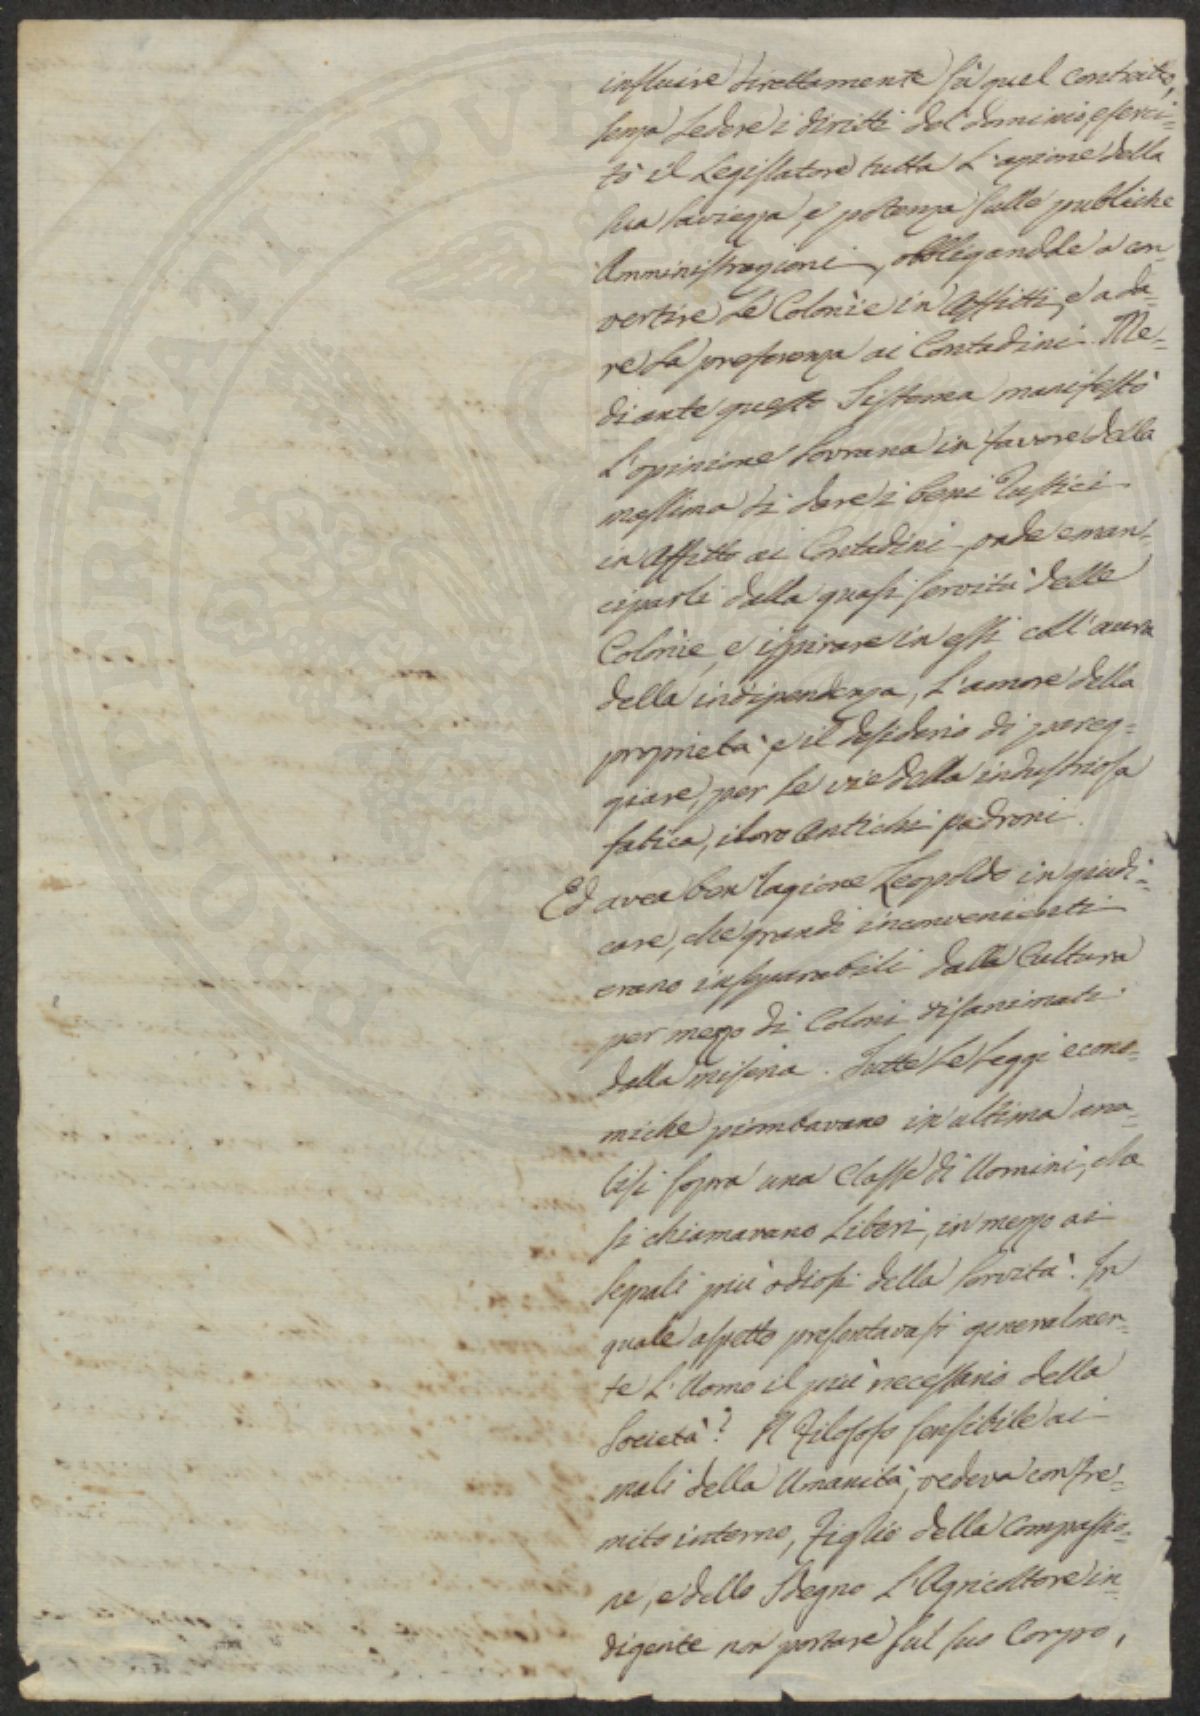 influire direttamente sù quel contratto,
senza Ledere i diritti del dominio, eserci-
tò il Legislatore tutta L'azione della
sua saviezza, e potenza sulle publiche
Amministrazioni, obbligandole a con-
vertire Le Colonìe in Affitti, e a da-
re La preferenza ai Contadini. Me-
diante questo Sistema manifestò
L'opinione Sovrana in favore della
massima di dare i beni Rustici
in Affitto ai Contadini onde eman-
ciparli dalla quasi servitù delle
Colonìe, e ispirare in essi coll'aura
della indipendenza, L'amore della
proprietà, e il desiderio di pareg-
giare, per Le vie della industriosa
fatica, i loro Antichi padroni.
Ed avea ben ragione Leopoldo in giudi-
care, che grandi inconvenienti
erano inseparabili dalla Cultura
per mezzo di Coloni disanimati
dalla miseria. Tutte Le Leggi econo-
miche piombavano in ultima ana-
lisi sopra una Classe di Uomini, che
si chiamavano Liberi, in mezzo ai
segnali più odiosi della servità. In
quale aspetto presentavasi generalmen-
te L'Uomo il più necessario della
Società? Il Filosofo sensibile ai
mali della Umanità, vedeva con fre-
mito interno, Figlio della Compassio-
ne, e dello Sdegno L'Agricoltore in-
digente non portare sul suo Corpo,